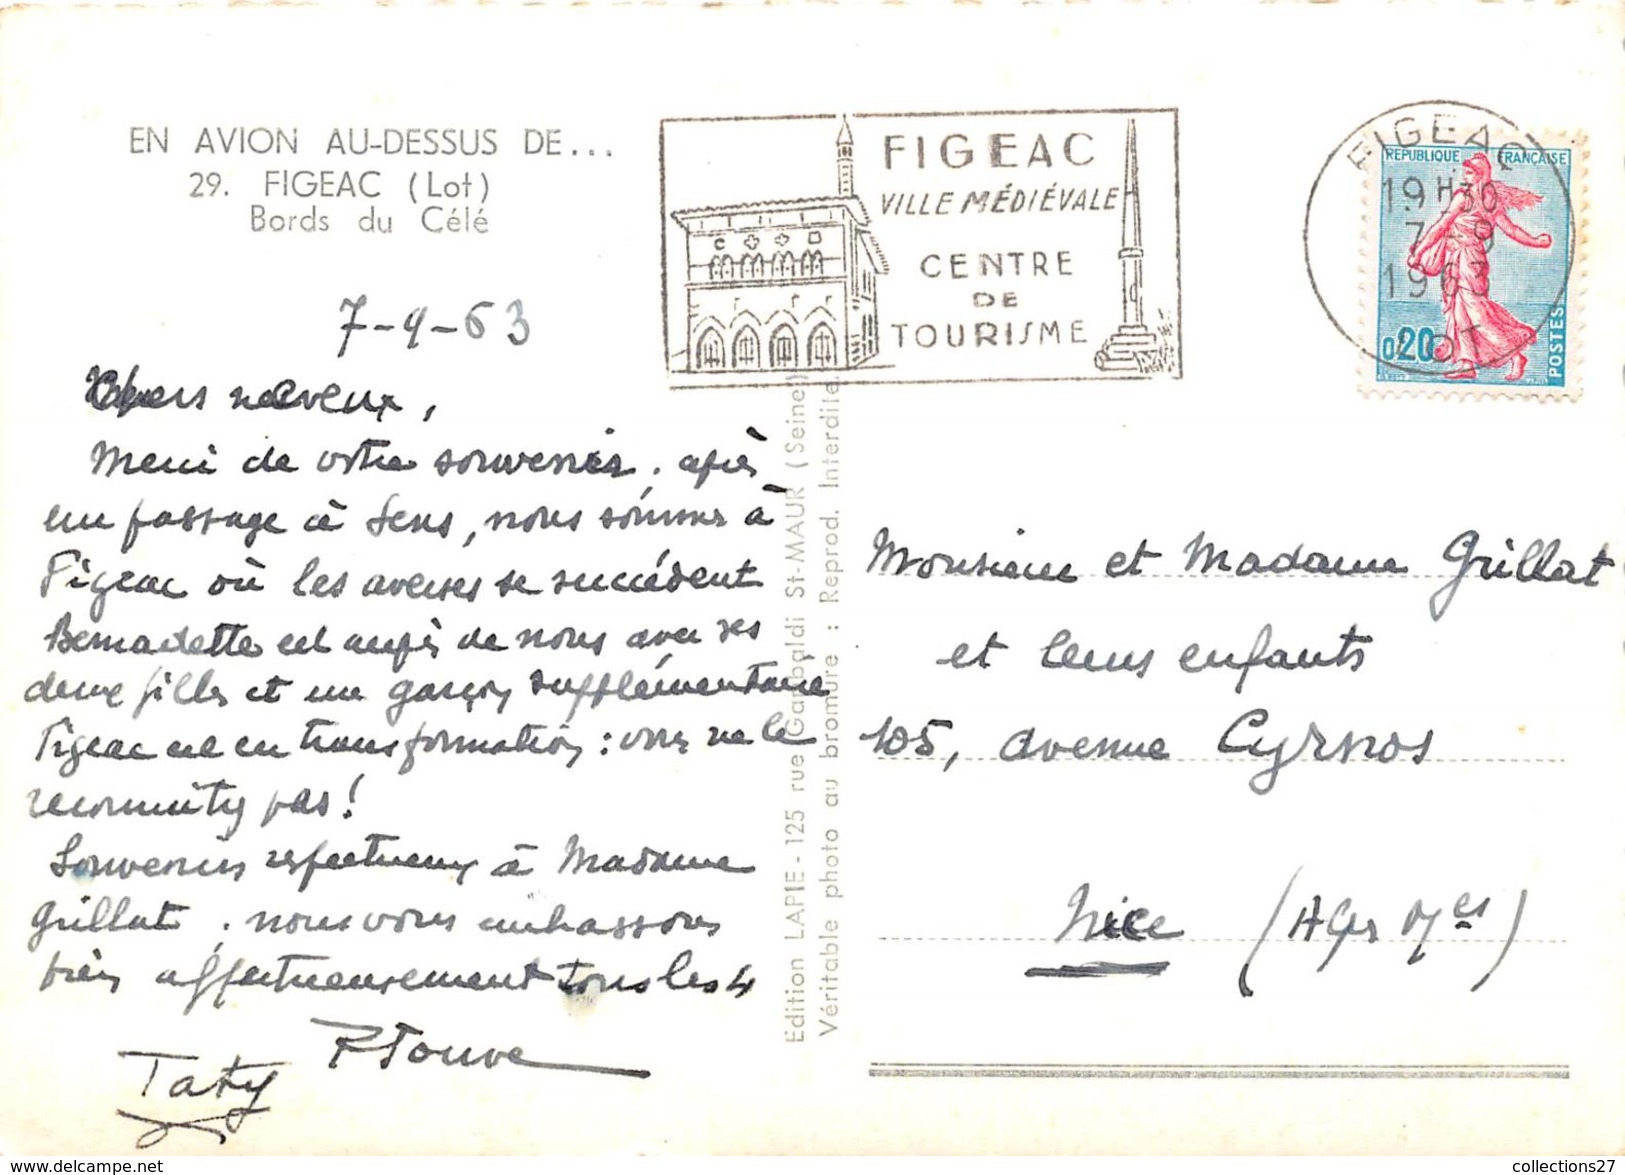 EN AVION AU-DESSUS DE...
29. FIGEAC (Lot)
Bords du Célé
7-9-63
Chers neveux,
Merci de votre souvenir. après
un passage à Sens, nous sommes à
Figeac où les averses se succèdent
Bernadette est auprès de nous avec ses
deux filles et un garçon supplémentaire
Figeac est en transformation : vous ne le
reconnaîtriez pas !
Souvenirs respectueux à Madame
Grillat. nous vous embrassons
bien affectueusement tous les 4
Taty
FIGEAC
VILLE MÉDIÉVALE
CENTRE
DE
TOURISME
FIGEAC
19H30
7-9
1963
LOT
REPUBLIQUE FRANÇAISE
0,20
POSTES
Edition LAPIE - 125 rue Garibaldi St-MAUR (Seine)
Véritable photo au bromure : Reprod. Interdite.
Monsieur et Madame Grillat
et leurs enfants
105, avenue Cyrnos
Nice (Alpes Mmes)
collections27